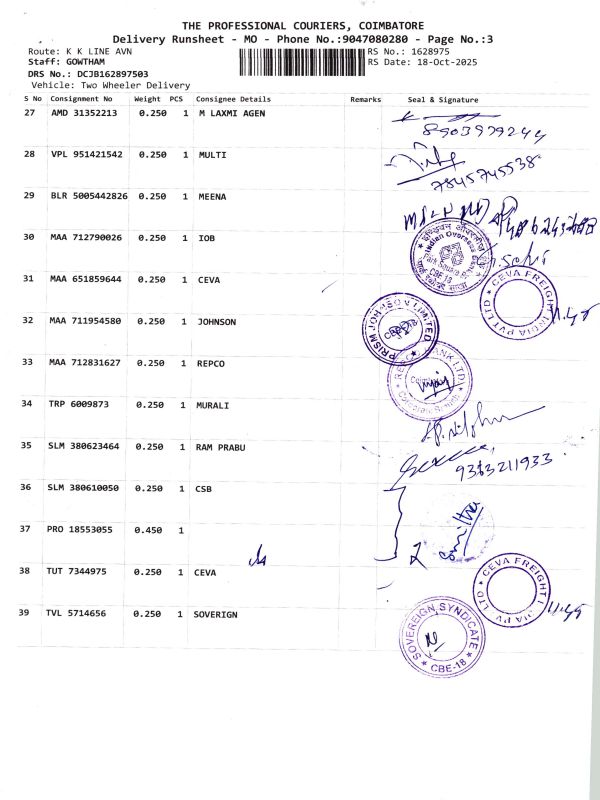 THE PROFESSIONAL COURIERS, COIMBATORE
Delivery Runsheet - MO - Phone No.:9047080280 - Page No.:3
Route: K K LINE AVN RS No.: 1628975
Staff: GOWTHAM RS Date: 18-Oct-2025
DRS No.: DCJB162897503
Vehicle: Two Wheeler Delivery
S No Consignment No Weight PCS Consignee Details Remarks Seal & Signature
27 AMD 31352213 0.250 1 M LAXMI AGEN
8903979244
28 VPL 951421542 0.250 1 MULTI
7845745538
29 BLR 5005442826 0.250 1 MEENA
30 MAA 712790026 0.250 1 IOB
Indian Overseas Bank
CBE-18
31 MAA 651859644 0.250 1 CEVA
CEVA FREIGHT INDIA PVT LTD
32 MAA 711954580 0.250 1 JOHNSON
PRISM JOHNSON LIMITED
33 MAA 712831627 0.250 1 REPCO
34 TRP 6009873 0.250 1 MURALI
35 SLM 380623464 0.250 1 RAM PRABU
9313211933
36 SLM 380610050 0.250 1 CSB
37 PRO 18553055 0.450 1
38 TUT 7344975 0.250 1 CEVA
CEVA FREIGHT INDIA PVT LTD
39 TVL 5714656 0.250 1 SOVERIGN
SOVEREIGN SYNDICATE
CBE-18